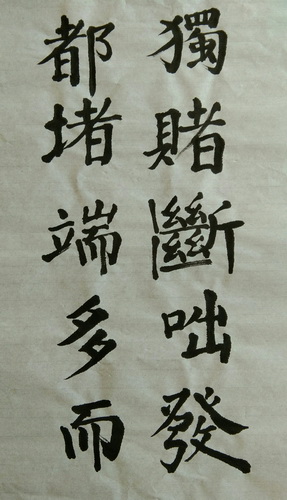 獨賭斷咄發
都堵端多而